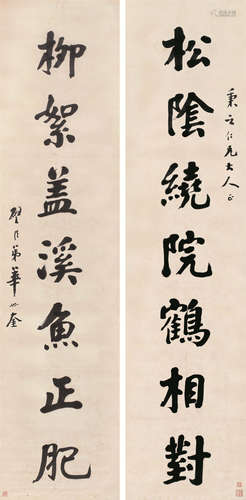 松陰繞院鶴相對
秉之仁兄大人正
柳絮盖溪魚正肥
璧臣弟華世奎